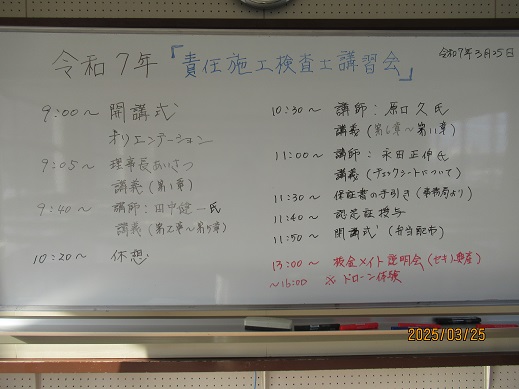 令和7年「責任施工検査士講習会」
令和7年3月25日
9:00〜 開講式
オリエンテーション
9:05〜 理事長あいさつ
講義(第1章)
9:40〜 講師:田中健一氏
講義(第2章〜第5章)
10:20〜 休憩
10:30〜 講師:原口久氏
講義(第6章〜第11章)
11:00〜 講師:永田正伸氏
講義(チェックシートについて)
11:30〜 保証書の手引き(事務局より)
11:40〜 認定証授与
11:50〜 閉講式(弁当配布)
13:00〜 板金メイト説明会(セキノ興産)
〜15:00 ※ドローン体験
2025/03/25